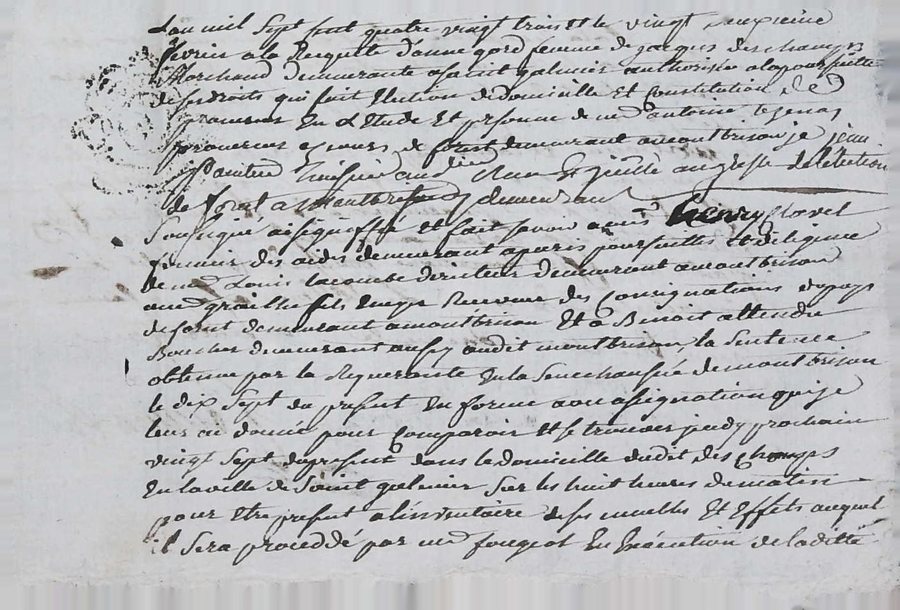 L'an mil sept cent quatre vingt trois et le vingt
fevrier a la Requete d'anne gord femme de jacques des champs
Marchand demeurante a saint galmier authorisée a la poursuitte
de ses droits qui fait Election de domicille et Constitution de
procureur En L'Etude et personne de me antoine
procureur es cours de forest demeurant a montbrison je jean
huissier au greffe de l'election
de forest a Montbrison y demeurant
Soussigné ai signiffié et fait savoir a mr henry Clavel
fermier des aides demeurant a paris poursuittes et diligence
de me Louis lacombe directeur demeurant a montbrison
a me fils Receveur des Consignations du pays
de forest demeurant a montbrison Et a Benoit attendu
Boucher demeurant aussy audit montbrison, la Sentence
obtenue par la Requerante En la Senechaussée de montbrison
le dix Sept du present En forme avec assignation que je
leur ai donné pour Comparoir Et se trouver jeudy prochain
vingt Sept du present dans le domicille dudit des Champs
En la ville de Saint galmier Sur les huit heures du matin
pour Etre present a l'inventaire de ses meubles Et Effets auquel
il Sera proceddé par me fougerot En Execution de laditte